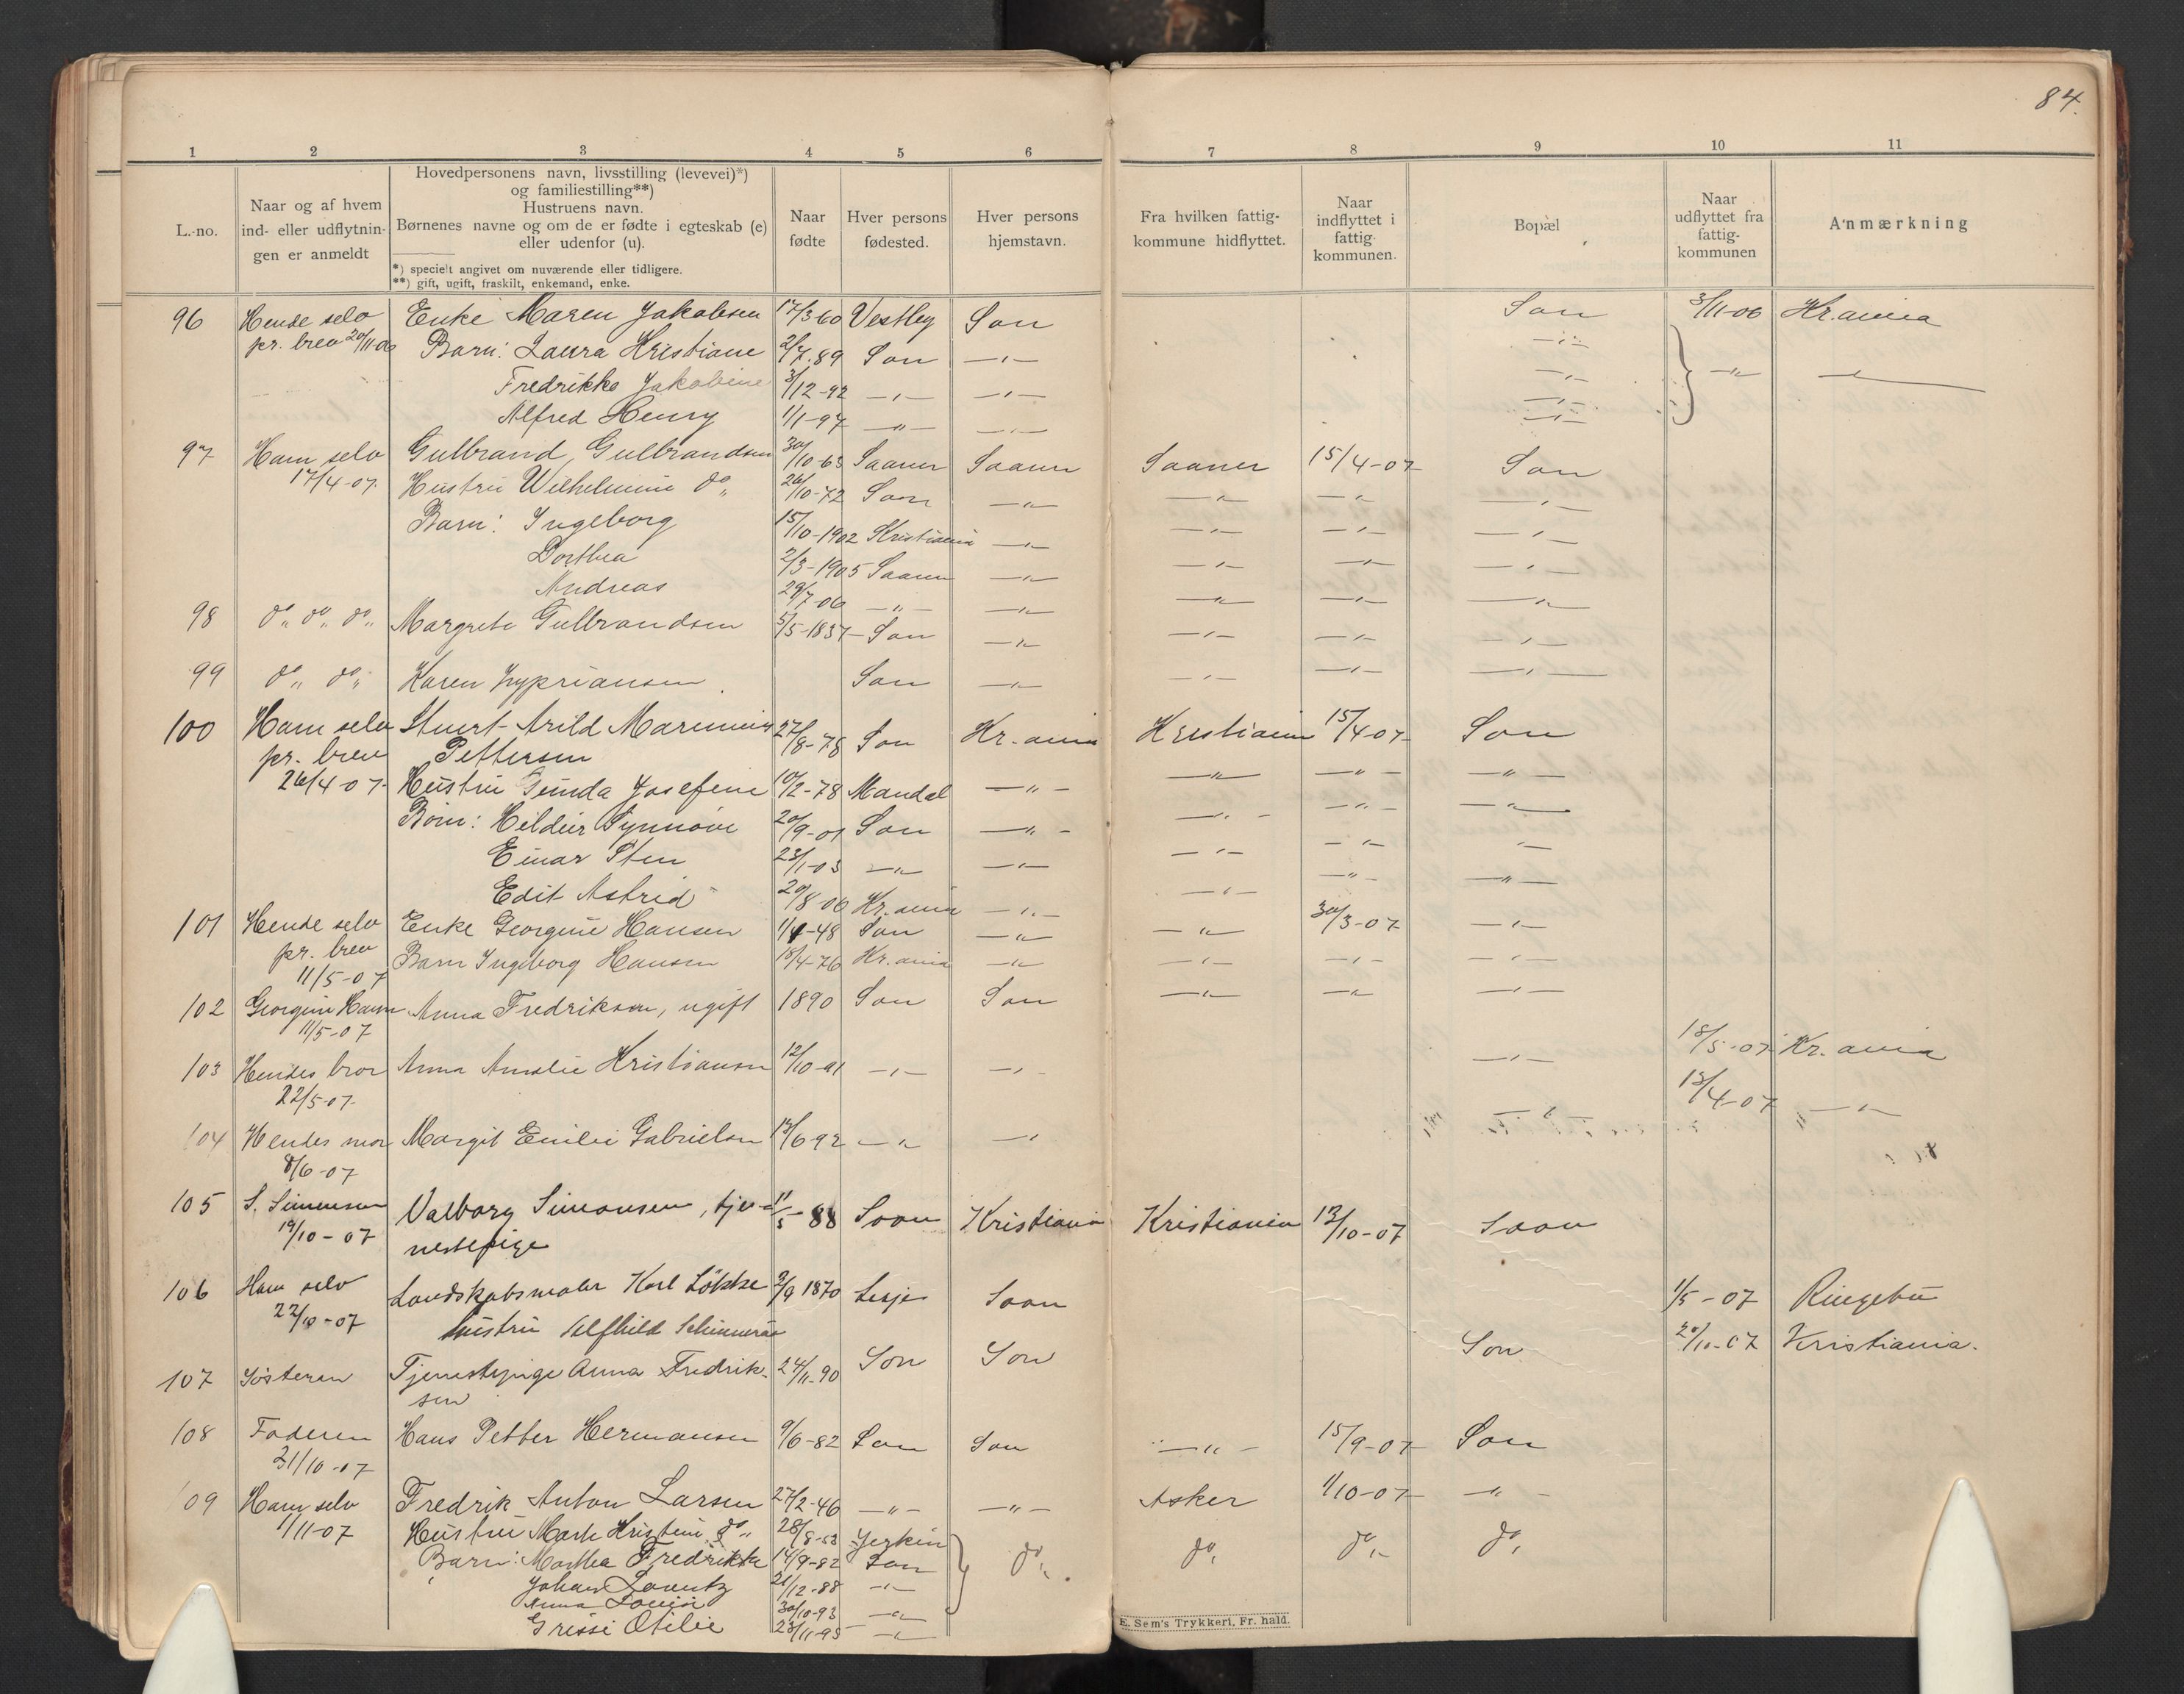 84.
1 2 3 4 5 6 7 8 9 10 11
L.-no.
Naar og af hvem
ind- eller udflytnin-
gen er anmeldt
Hovedpersonens navn, livsstilling (levevei)*)
og familiestilling**)
Hustruens navn.
Børnenes navne og om de er fødte i egteskab (e)
eller udenfor (u).
*) specielt angivet om nuværende eller tidligere.
**) gift, ugift, fraskilt, enkemand, enke.
Naar
fødte
Hver persons
fødested.
Hver persons
hjemstavn.
Fra hvilken fattig-
kommune hidflyttet.
Naar
indflyttet i
fattig-
kommunen.
Bopæl
Naar
udflyttet fra
fattig-
kommunen
Anmærkning
96 Hende selv Enke Maren Jakobsen 17/3-60 Vestby Son Son 3/11-06 Kr.ania
pr. brev 20/11-06 Barn: Laura Kristiane 2/7-89 Son —"— —"—
Fredrikke Jakobine 3/12-92 —"— —"— —"— —"— —"—
Alfred Henry 1/1-97 —"— —"— —"—
97 Ham selv Gulbrand Gulbrandsen 30/10-63 Saaner Saaner Saaner 15/4-07 Son
17/4-07. Hustru Wilhelmine do 26/10-72 Soon —"— —"— —"— —"—
Barn: Ingeborg 15/10-1902 Kristiania —"— —"— —"— —"—
Dorthea 2/3-1905 Saaner —"— —"— —"— —"—
Andreas 29/7-06 —"— —"— —"— —"— —"—
98 do do do Margrete Gulbrandsen 5/5-1837 Son —"— —"— —"— —"—
99 do do Karen Zypriansen Son —"— —"— —"— —"—
100 Ham selv Stuert Arild Marenius 27/8-78 Son Kr.ania Kristiania 15/4-07 Son
pr. brev Pettersen
26/4-07- Hustru Gunda Josefine 10/2-78 Mandal —"— —"— —"— —"—
Börn: Hildur Synnöve 20/9-01 Son —"— —"— —"— —"—
Einar Sten 23/1-03 —"— —"— —"— —"— —"—
Edit Astrid 20/8-06 Kr.ania —"— —"— —"— —"—
101 Hende selv Enke Georgine Hansen 1/4-48 Son —"— —"— 30/3-07 —"—
pr. brev Barn Ingeborg Hansen 18/4-76 Kr.ania —"— —"— —"— —"—
11/5-07
102 Georgine Hansen Anna Fredriksen, ugift 1890 Son Son —"— —"— —"—
11/5-07
103 Hendes bror Anna Amalie Kristiansen 12/10-91 —"— —"— —"— 18/5-07 Kr.ania
22/5-07.
104 Hendes mor Margit Emilie Gabrielsen 17/6-92 —"— —"— —"— 13/4-07 —"—
8/6-07
105 S. Simensen Valborg Simonsen, tje- 11/5-88 Soon Kristiania Kristiania 13/10-07 Soon
19/10-07 nestepige
106 Ham selv Landskabsmaler Karl Lökke 2/9 1870 Lesje Soon 1/5-07 Ringebu
22/10-07 hustru Alfhild
107 Søsteren Tjenestepige Anna Fredrik- 24/11-90 Son Son Son 20/11-07 Kristiania.
sen
108 Faderen Hans Petter Hermansen 9/6-82 Son Son —"— 15/9-07 Son
31/10-07
109 Ham selv Fredrik Anton Larsen 27/2-46 —"— —"— Asker 1/10-07 —"—
1/11-07 Hustru Marte Kristine do 28/8-53
Barn: Martha Fredrikke 14/9-82 Son do do do do
Johan Lorentz 21/12-88 —"—
Anna Lovise 30/10-93 —"—
Grissi Otilie 23/11-95 —"—
E. Sem's Trykkeri, Fr. hald.